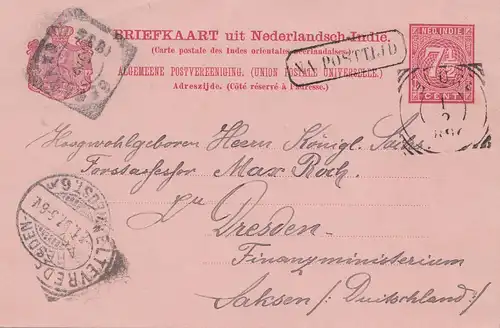 BRIEFKAART uit Nederlandsch-Indie.
(Carte postale des Indes orientales Neerlandaises.)
ALGEMEENE POSTVEREENIGING. (UNION POSTALE UNIVERSELLE.)
Adreszijde. (Côté réservé à l'adresse.)
NA POSTTIJD
NED. INDIE
7½
CENT.
Hoogwohlgeboren Herrn Königl. Sächs.
Forstassessor Max Roch.
zu Dresden-
Finanzministerium
Saksen (Duitschland)
WELTEVREDEN
DRESDEN-